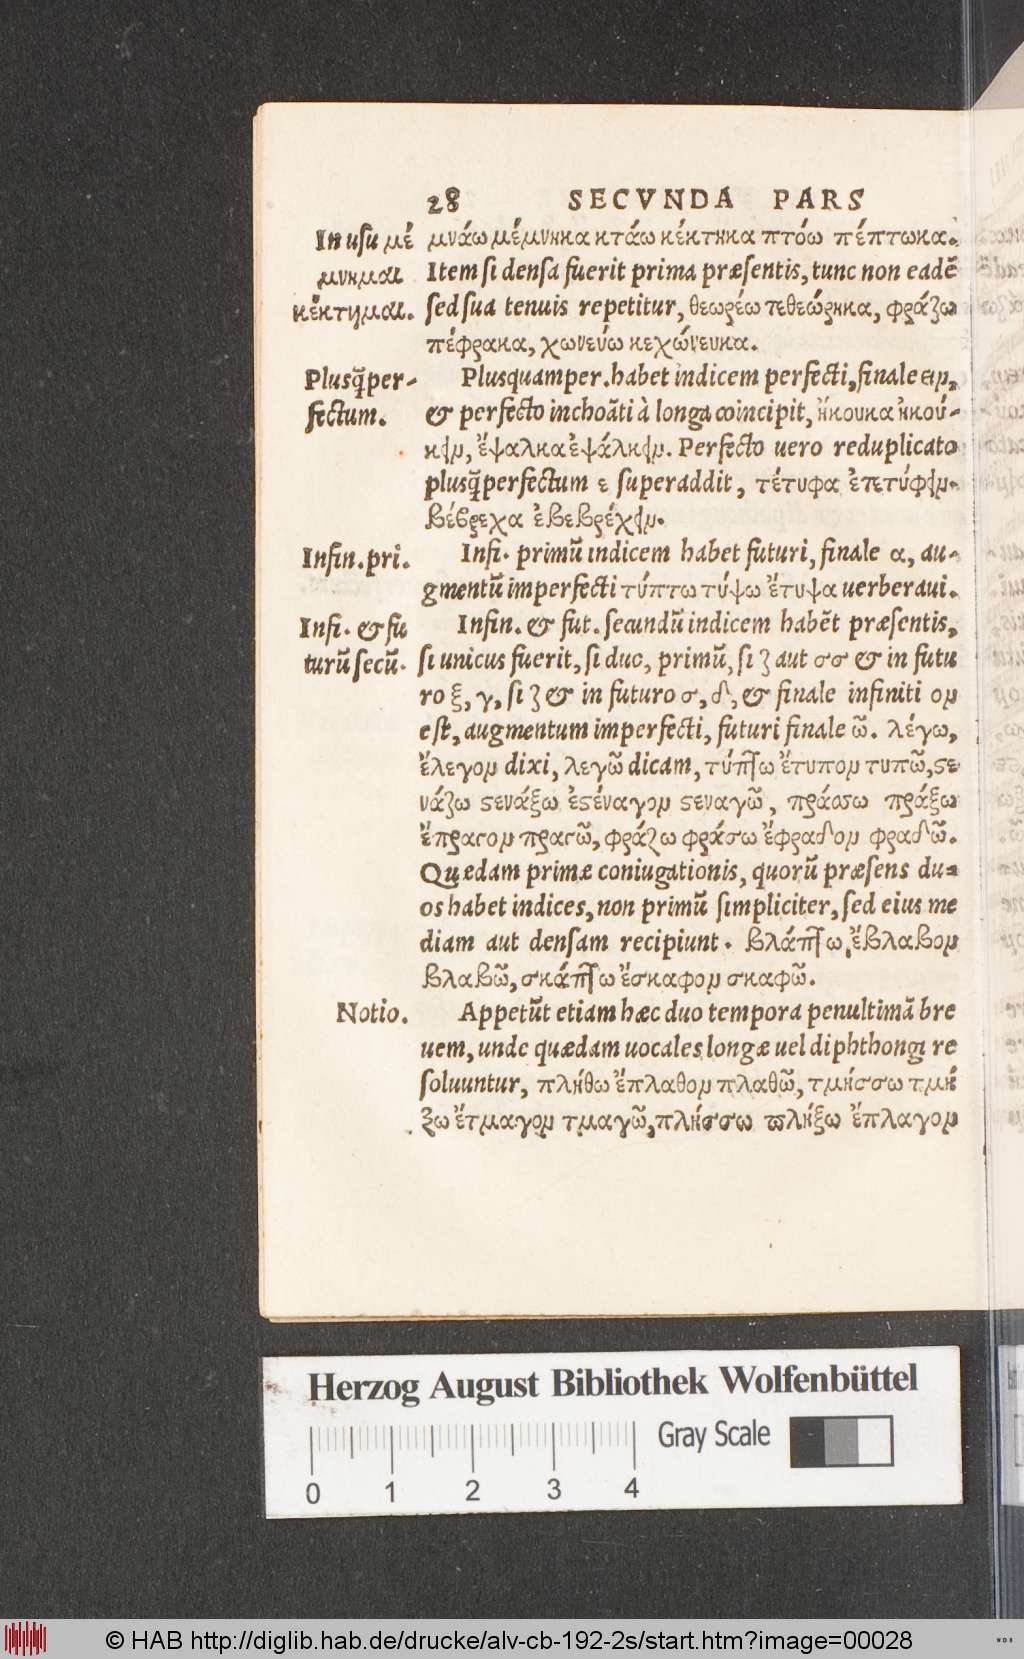 28 SECVNDA PARS
In usu μέ
μνημαι
κέκτημαι.
μνάω μέμνηκα κτάω κέκτηκα πτόω πέπτωκα.
Item si densa fuerit prima præsentis, tunc non eadē
sed sua tenuis repetitur, θεωρέω τεθεώρηκα, φράζω
πέφρακα, χωνεύω κεχώνευκα.
Plusq̃per-
fectum.
Plusquamper. habet indicem perfecti, finale ειν,
& perfecto inchoāti à longa coincipit, ἤκουκα ἠκού-
κειν, ἔψαλκα ἐψάλκειν. Perfecto uero reduplicato
plusq̃perfectum ε superaddit, τέτυφα ἐτετύφειν.
βέβρεχα ἐβεβρέχειν.
Infin. pri.
Infi. primū indicem habet futuri, finale α, au-
gmentū imperfecti τύπτω τύψω ἔτυψα uerberaui.
Infi. & fu
turū secū.
Infin. & fut. secundū indicem habēt præsentis,
si unicus fuerit, si duo, primū, si ζ aut σσ & in futu
ro ξ, γ, si ζ & in futuro σ, δ, & finale infiniti ον
est, augmentum imperfecti, futuri finale ῶ. λέγω,
ἔλεγον dixi, λεγῶ dicam, τύπτω ἔτυπον τυπῶ, ϛε
νάζω ϛενάξω ἐϛέναγον ϛεναγῶ, πράσσω πράξω
ἔπραγον πραγῶ, φράζω φράσω ἔφραδον φραδῶ.
Quædam primæ coniugationis, quorū præsens du-
os habet indices, non primū simpliciter, sed eius me
diam aut densam recipiunt. βλάπτω, ἔβλαβον
βλαβῶ, σκάπτω ἔσκαφον σκαφῶ.
Notio.
Appetūt etiam hæc duo tempora penultimā bre
uem, unde quædam uocales longæ uel diphthongi re
soluuntur, πλήθω ἔπλαθον πλαθῶ, τμήσσω τμή
ξω ἔτμαγον τμαγῶ, πλήσσω πλήξω ἔπλαγον
Herzog August Bibliothek Wolfenbüttel
Gray Scale
0 1 2 3 4
© HAB http://diglib.hab.de/drucke/alv-cb-192-2s/start.htm?image=00028